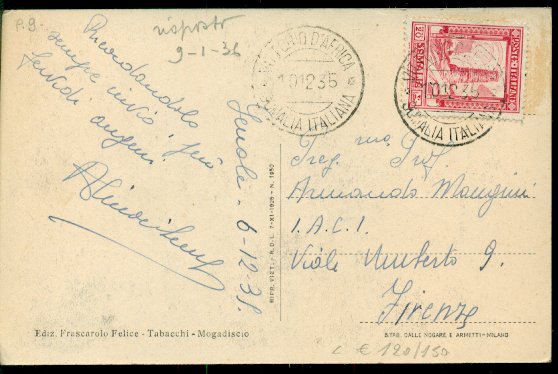 P.9
risposto
9-1-36
Ricordandola
sempre invio i più
fervidi auguri
Genale - 6-12-35
CORNO D'AFRICA
10 12 35
SOMALIA ITALIANA
POSTE ITALIANE
SOMALIA
10 12 35
SOMALIA ITALIANA
Preg.mo Prof.
Armando Maugini
I.A.C.I.
Viale Umberto 9.
Firenze
RIPR. VIET. - R.D.L. 7-XI-1925 - N. 1950
Ediz. Frascarolo Felice - Tabacchi - Mogadiscio
S.TAB. DALLE NOGARE E ARMETTI - MILANO
€ 120/150